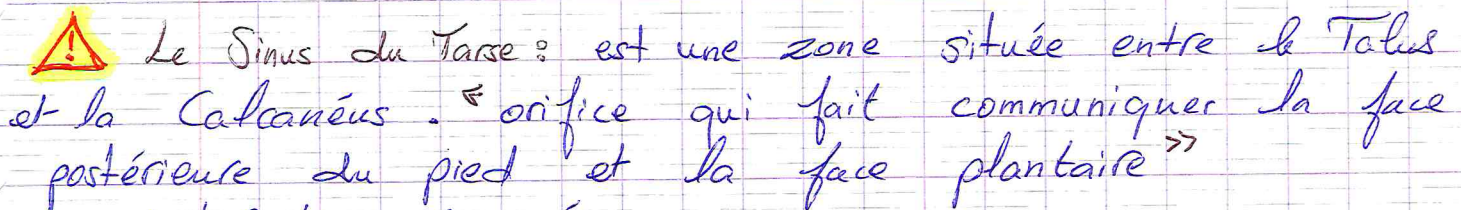 ⚠ Le Sinus du Tarse : est une zone située entre le Talus
et la Calcanéus . « orifice qui fait communiquer la face
postérieure du pied et la face plantaire »